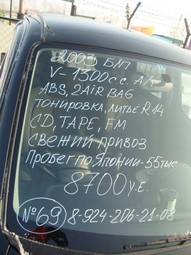 2003 БПГ
V-1500 c.c. A/T
ABS, 2AIR BAG
ТОНИРОВКА, ЛИТЬЕ R14
CD, TAPE, FM
СВЕЖИЙ ПРИВОЗ
Пробег по Японии-55тыс
8700 y.e.
№69 8-924-206-21-08